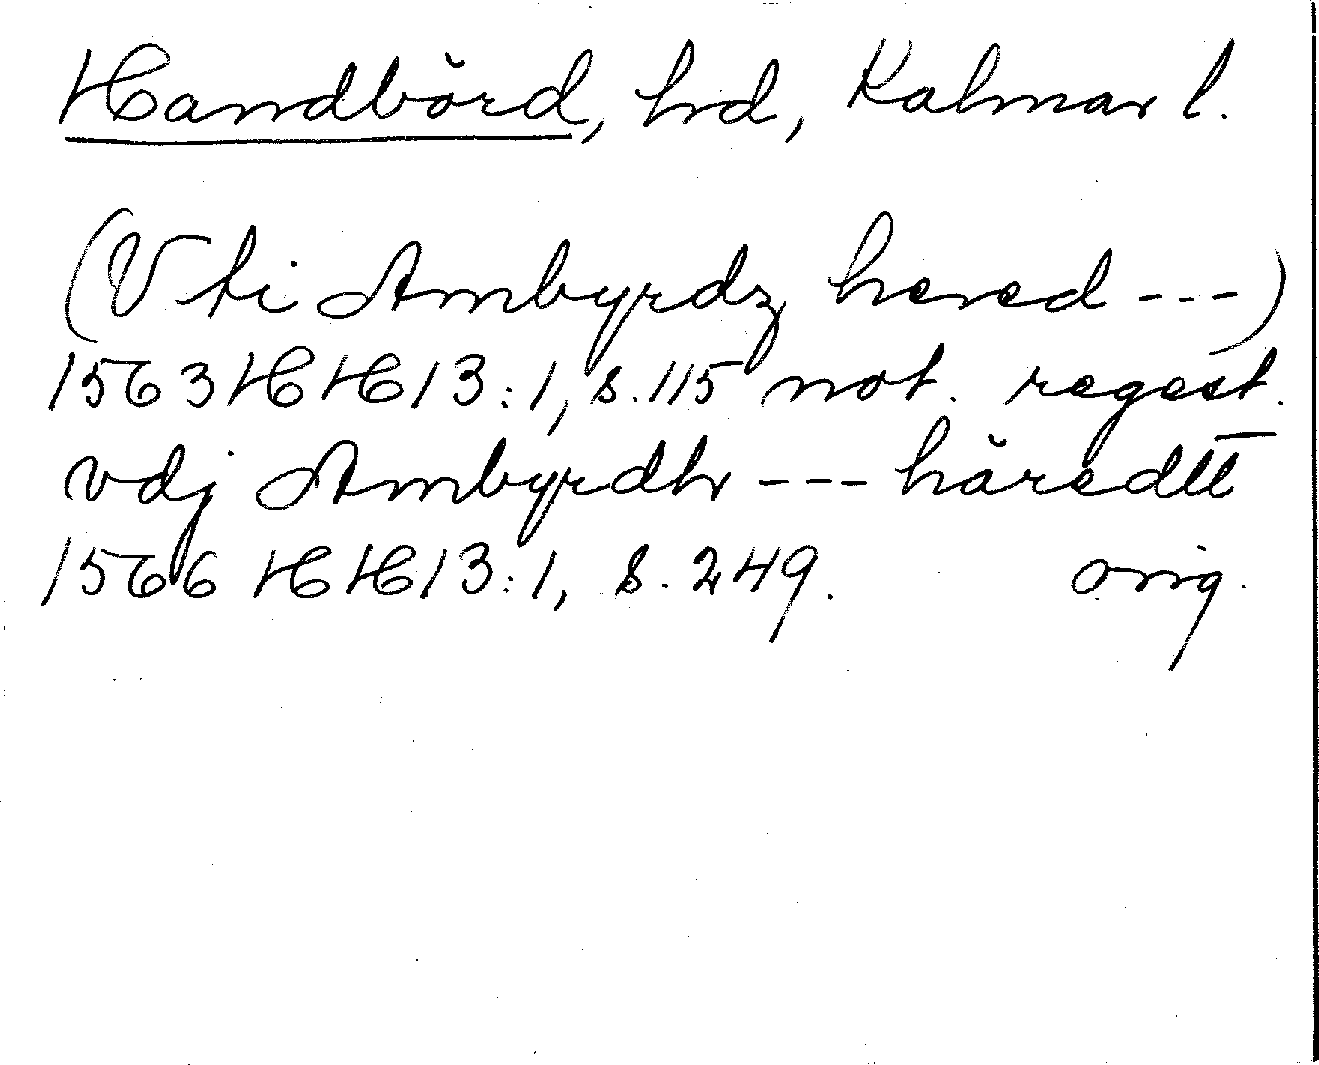 Handbörd, hd, Kalmar l.
(Vti Ambyrdz hered ---)
1563 HH13:1, s. 115 not. regest.
vdj Ambyrdh --- häredtt
1566 HH13:1, s. 249. orig.